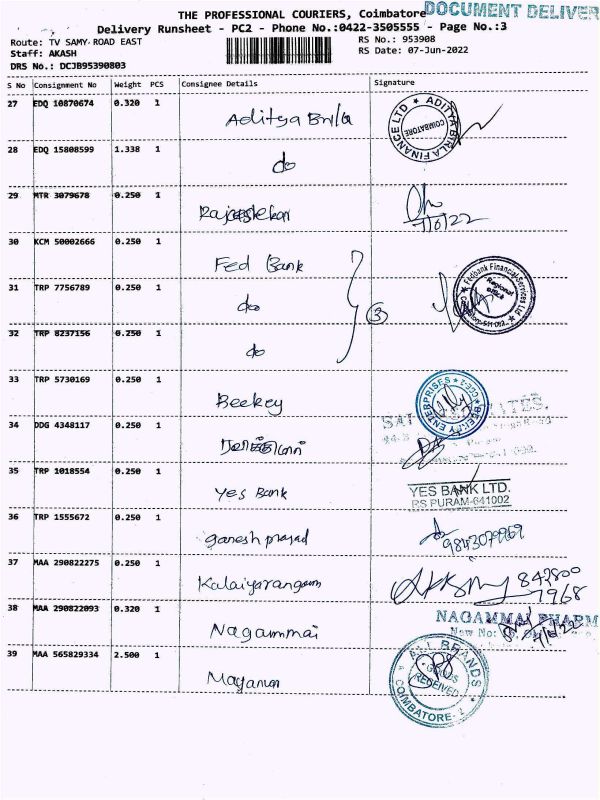 DOCUMENT DELIVER
THE PROFESSIONAL COURIERS, Coimbatore
Delivery Runsheet - PC2 - Phone No.:0422-3505555 - Page No.:3
Route: TV SAMY ROAD EAST
RS No.: 953908
Staff: AKASH
RS Date: 07-Jun-2022
DRS No.: DCJB95390803
S No Consignment No Weight PCS Consignee Details Signature
27 EDQ 10870674 0.320 1
Aditya Birla
ADITYA BIRLA FINANCE LTD
COIMBATORE
28 EDQ 15808599 1.338 1
do
29 MTR 3079678 0.250 1
30 KCM 50002666 0.250 1
Fed Bank
31 TRP 7756789 0.250 1
do
3
Fedbank Financial Services Ltd
Regional Office
32 TRP 8237156 0.250 1
do
33 TRP 5730169 0.250 1
Beekey
BEEKEY ENTERPRISES
CBE-2
34 DDG 4348117 0.250 1
35 TRP 1018554 0.250 1
Yes Bank
YES BANK LTD.
RS PURAM-641002
36 TRP 1555672 0.250 1
Ganesh prasad
9843079969
37 MAA 290822275 0.250 1
842800
7968
38 MAA 290822093 0.320 1
Nagammai
NAGAMMAI PHARM
New No:
39 MAA 565829334 2.500 1
ALL BRANDS
GOODS
RECEIVED
COIMBATORE - 2